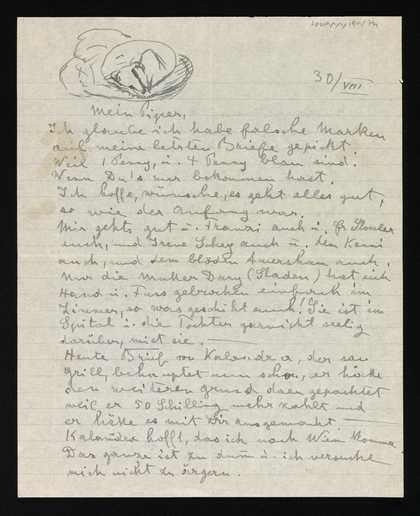 30/VIII
Mein Piper,
Ich glaube ich habe falsche Marken
auf meine letzten Briefe gepickt.
Weil 1 Penny, u. 4 Penny blau sind.
Wenn Du's nur bekommen hast.
Ich hoffe, wünsche, es geht alles gut,
so wie der Anfang war.
Mir gehts gut u. Franzi auch u. Fr
auch, und Irene auch u. dem
auch, und dem blöden Amersham auch.
Nur die Mutter Dary (Sladen) hat sich
Hand u. Fuss gebrochen einfach im
Zimmer, so was geschikt auch! Sie ist im
Spital u. die Töchter garnicht seelig
darüber, miet sie.
Heute Brief von Kalander, der sau
grill, behauptet nun schon, er hätte
den weiteren grund dazu gepachtet
weil er 50 Schilling mehr zahlt und
er hätte es mit Dir ausgemacht.
Kalander hofft, das ich nach Wien komme
Das ganze ist zu dumm u. ich versuche
mich nicht zu ärgern.